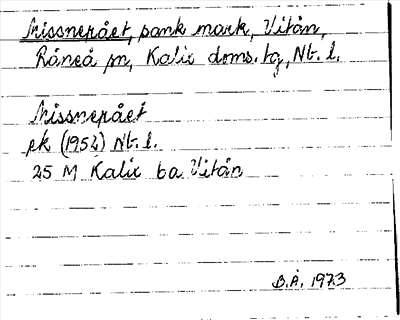 Missnepået, sank mark, Vitån,
Råneå sn, Kalix doms. tg, Nb. l.
Missnepået
ek (1952) Nb. l.
25 M Kalix 6a Vitån
B.Å. 1973